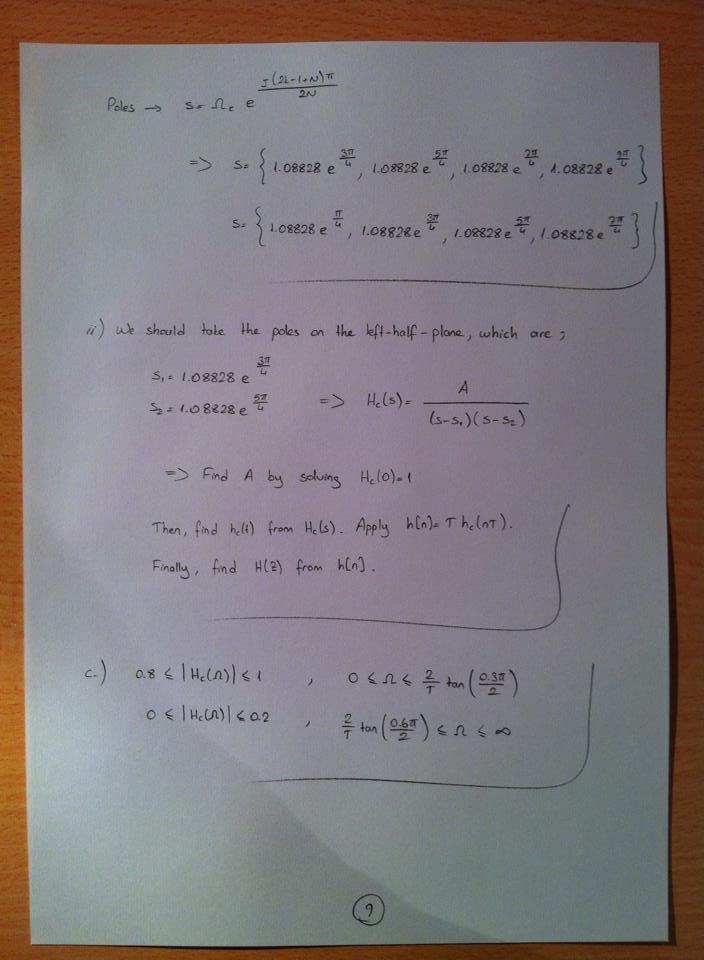 Poles → s = Ω_c e^{J(2k-1+N)π / 2N}
=> s = { 1.08828 e^{3π/4}, 1.08828 e^{5π/4}, 1.08828 e^{7π/4}, 1.08828 e^{9π/4} }
s = { 1.08828 e^{π/4}, 1.08828 e^{3π/4}, 1.08828 e^{5π/4}, 1.08828 e^{7π/4} }
ii) We should take the poles on the left-half-plane, which are ;
s₁ = 1.08828 e^{3π/4}
s₂ = 1.08828 e^{5π/4} => H_c(s) = A / (s-s₁)(s-s₂)
=> Find A by solving H_c(0)=1
Then, find h_c(t) from H_c(s). Apply h[n] = T h_c(nT).
Finally, find H(z) from h[n].
c.) 0.8 ≤ |H_c(Ω)| ≤ 1 , 0 ≤ Ω ≤ 2/T tan(0.3π/2)
0 ≤ |H_c(Ω)| ≤ 0.2 , 2/T tan(0.6π/2) ≤ Ω ≤ ∞
9